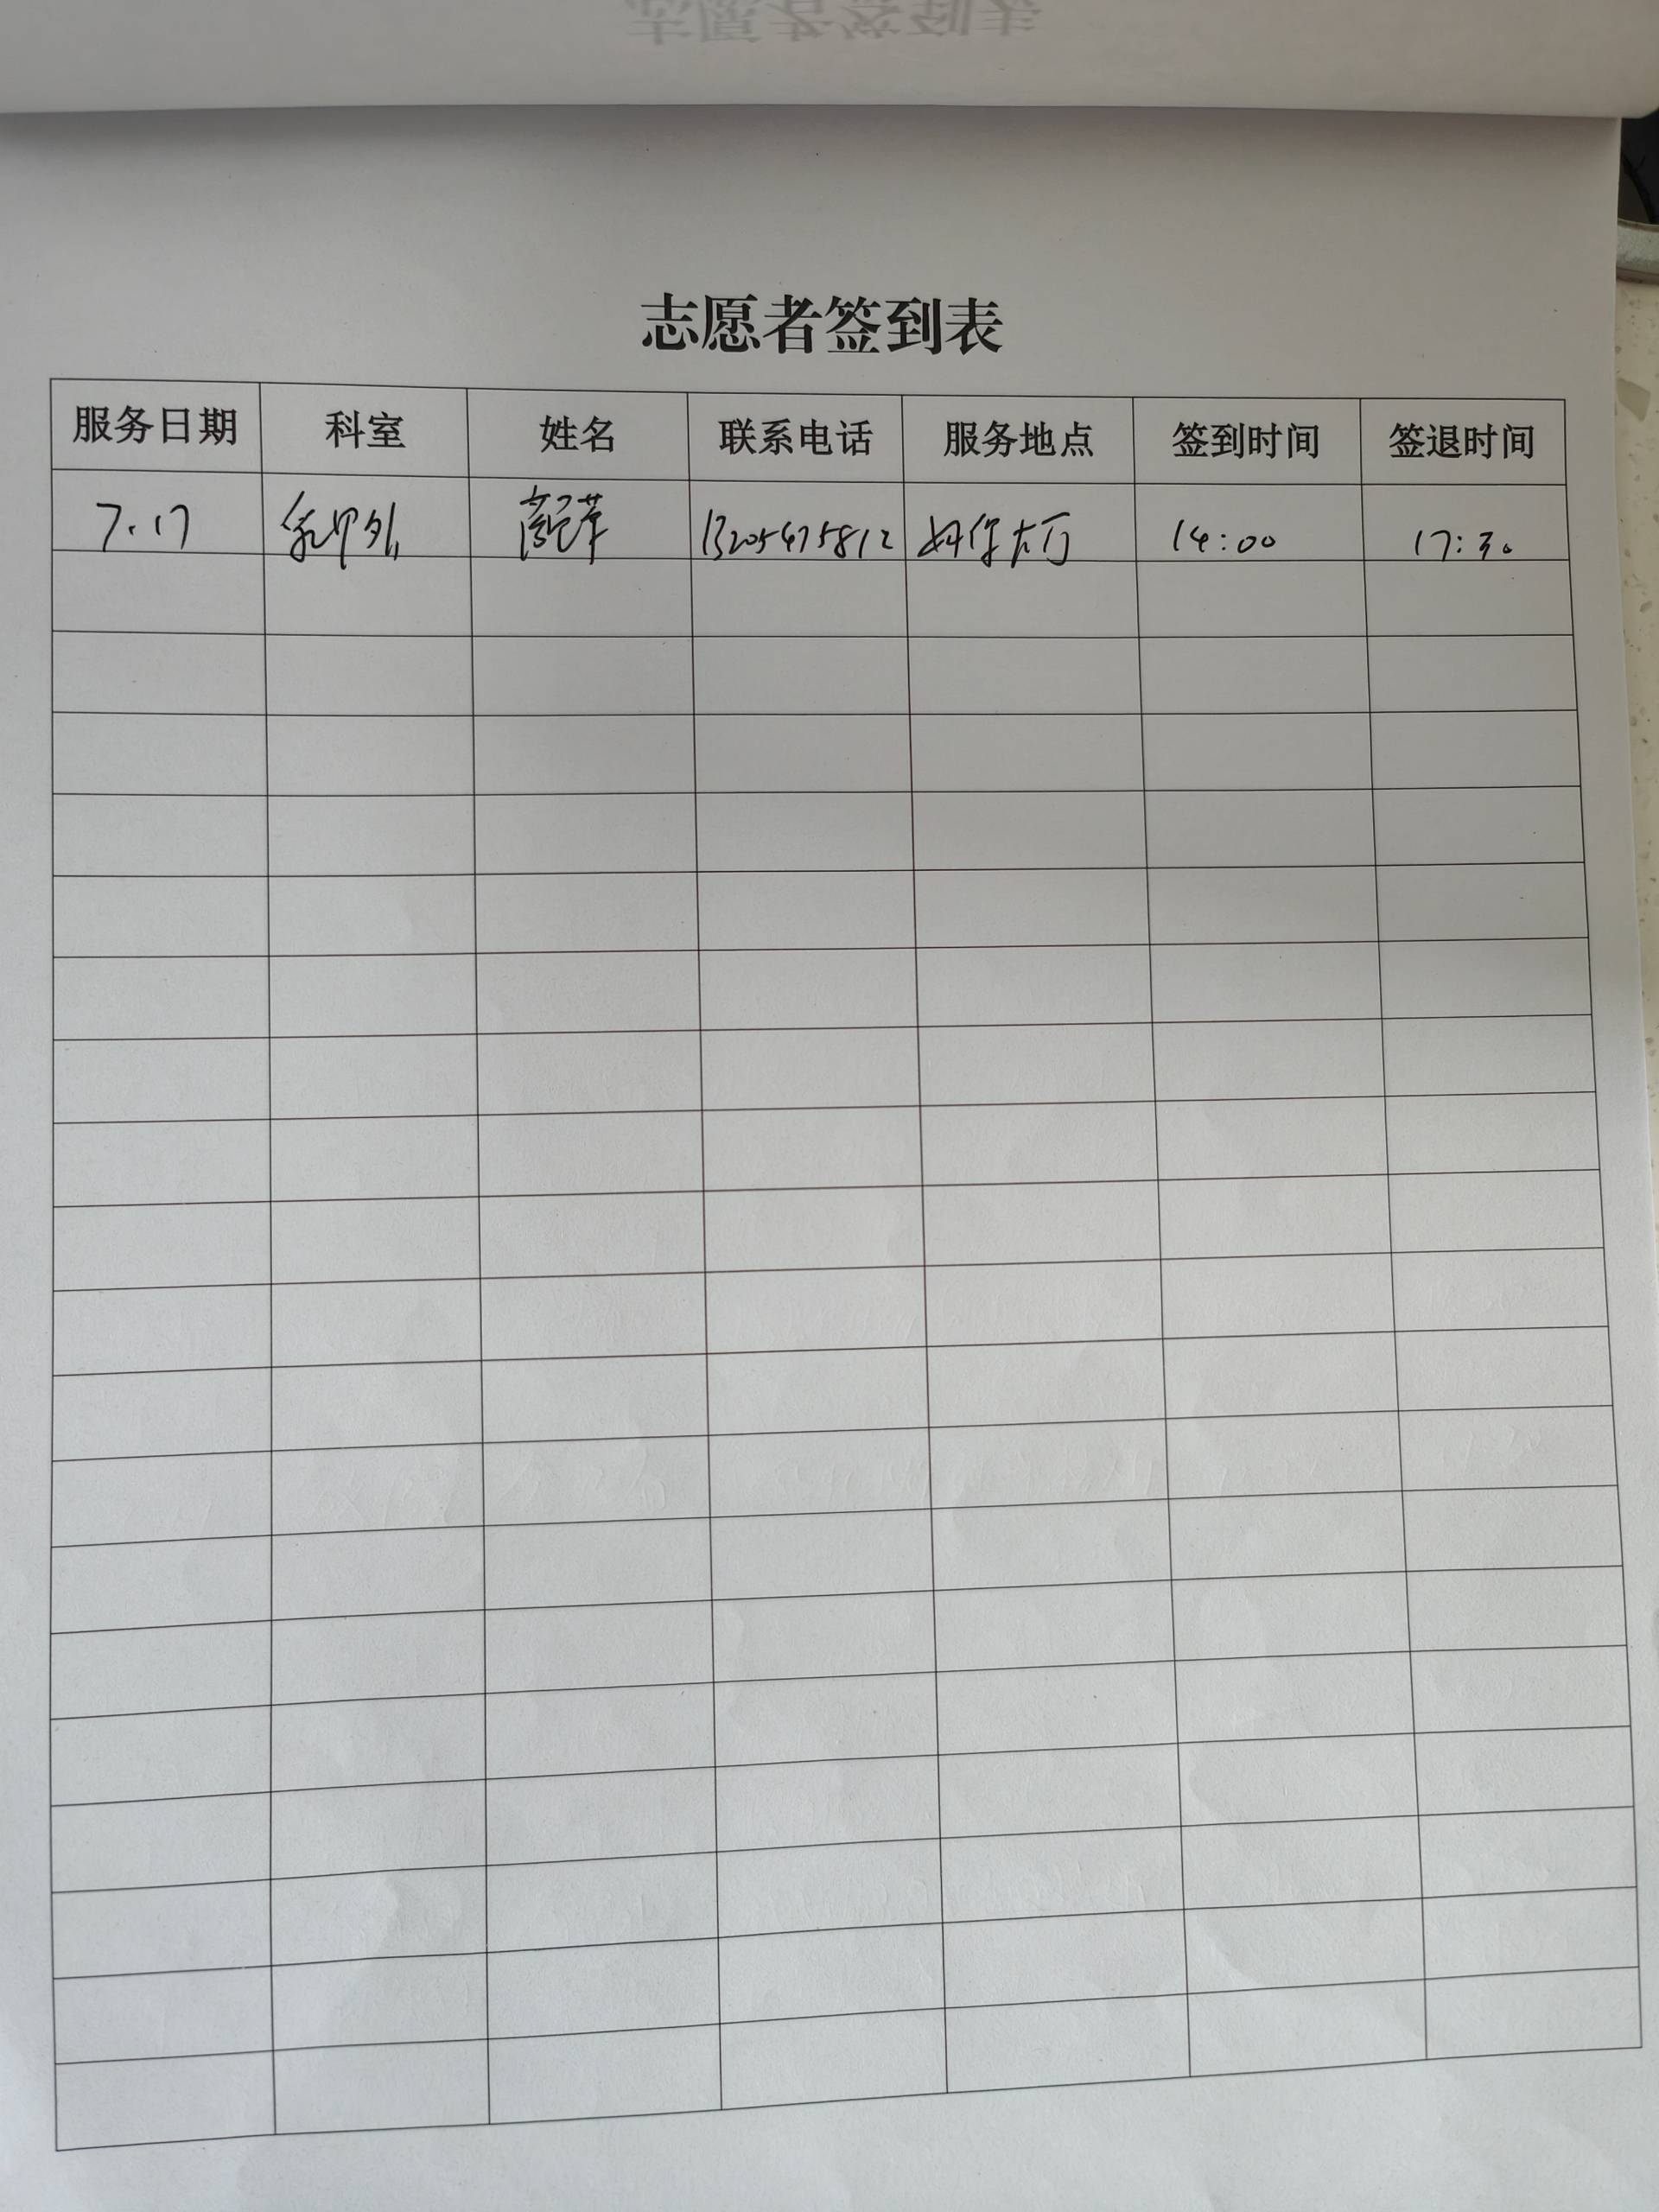 志愿者签到表
服务日期 科室 姓名 联系电话 服务地点 签到时间 签退时间
7.17 乳甲外 13205475812 妇保大厅 14:00 17:30